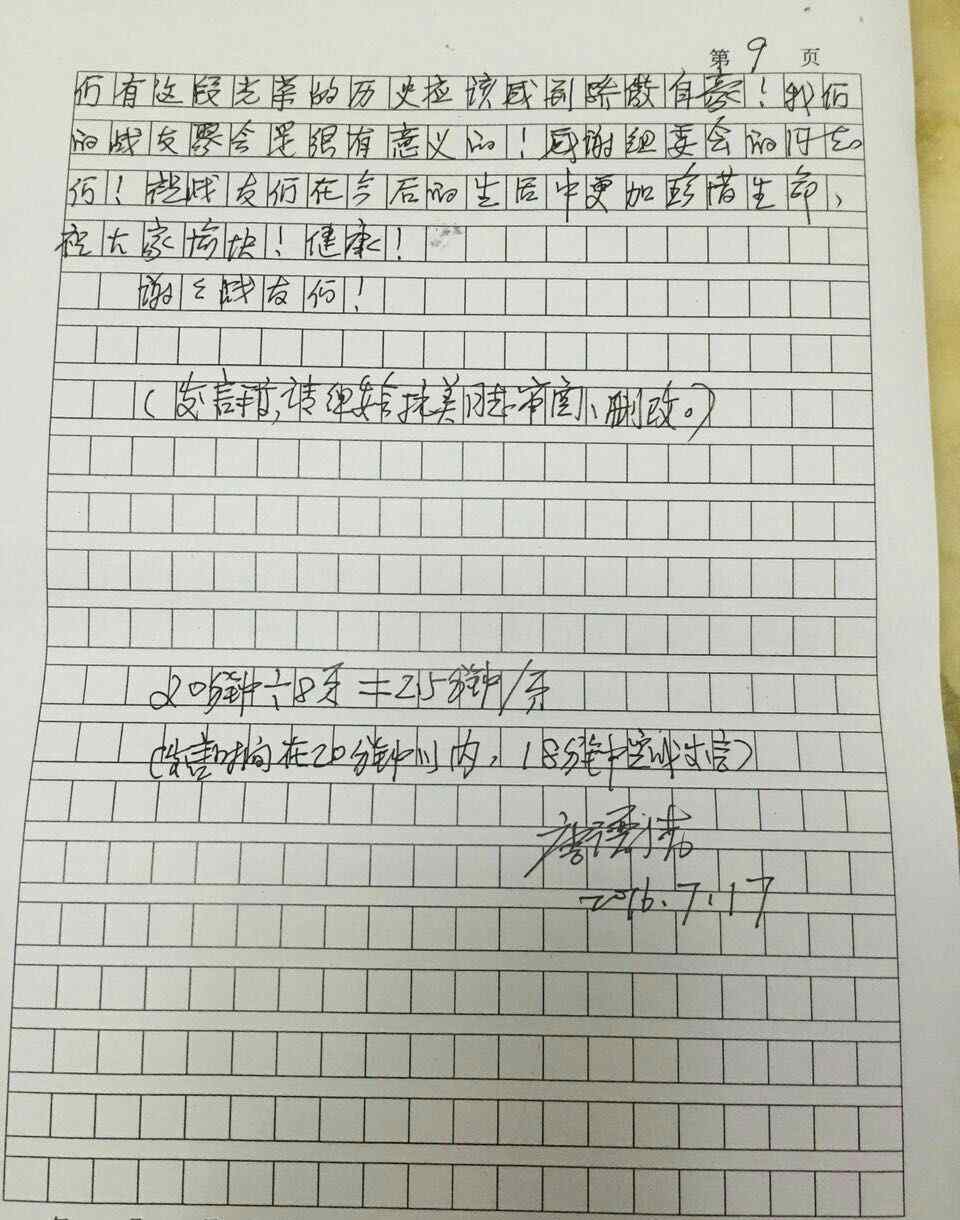 第 9 页
们有这段光荣的历史应该感到骄傲自豪！我们
的战友聚会是很有意义的！感谢组委会的同志
们！祝战友们在今后的生活中更加珍惜生命，
祝大家愉快！健康！
谢谢战友们！
(发言稿，请组委会 美同志审阅、删改。)
20分钟÷8页=2.5分钟/页
(发言时间在20分钟以内，18分钟 发言)
2016.7.17